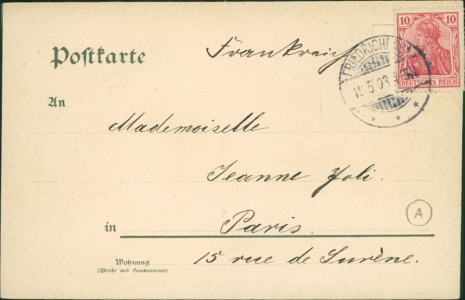 Postkarte
Frankreich
10 10
DEUTSCHES REICH
15.5.03
An
Mademoiselle
Jeanne Joli.
A
in Paris.
Wohnung
(Straße und Hausnummer)
15 rue de Surène.